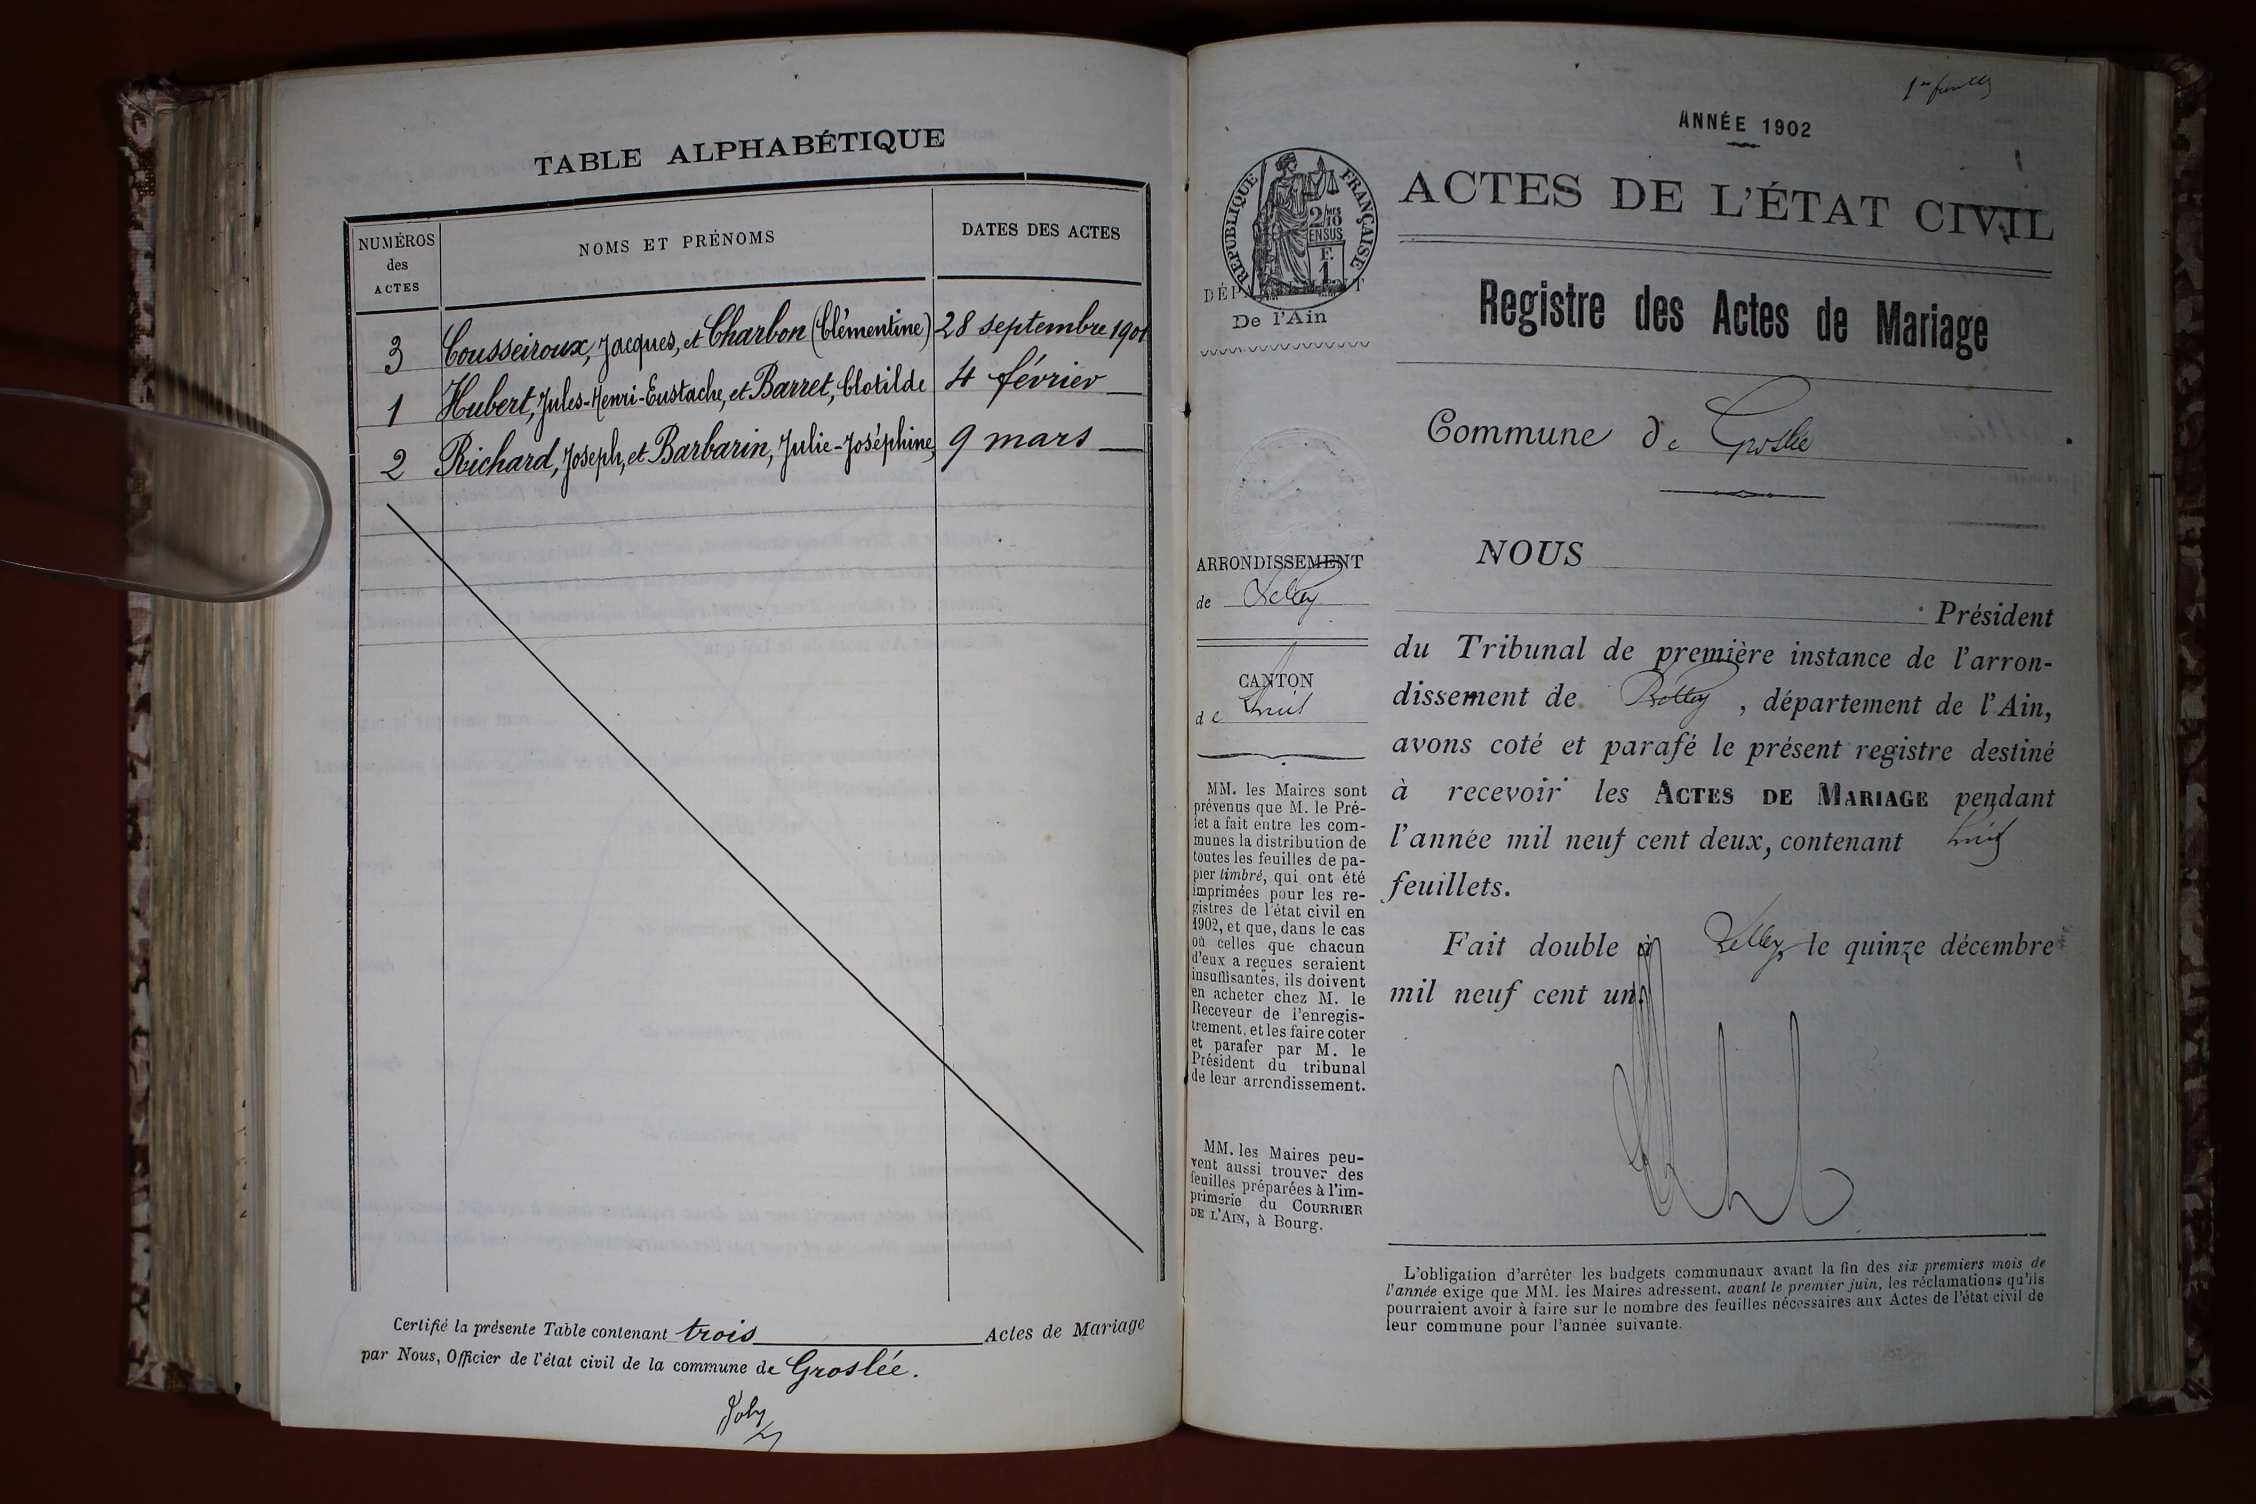 TABLE ALPHABÉTIQUE
NUMÉROS
des
ACTES
NOMS ET PRÉNOMS
DATES DES ACTES
3 Cousseiroux, Jacques, et Charbon (Clémentine) 28 septembre 1901
1 Hubert, Jules-Henri-Eustache, et Barret, Clotilde 4 février
2 Richard, Joseph, et Barbarin, Julie-Joséphine, 9 mars
Certifié la présente Table contenant trois Actes de Mariage
par Nous, Officier de l'état civil de la commune de Groslée.
Joly
ANNÉE 1902
ACTES DE L'ÉTAT CIVIL
RÉPUBLIQUE FRANÇAISE
2/10
EN SUS
F.
1
DÉPARTEMENT
De l'Ain
Registre des Actes de Mariage
Commune de Groslée
ARRONDISSEMENT
de Belley
CANTON
de Lhuis
MM. les Maires sont
prévenus que M. le Pré-
fet a fait entre les com-
munes la distribution de
toutes les feuilles de pa-
pier timbré, qui ont été
imprimées pour les re-
gistres de l'état civil en
1902, et que, dans le cas
où celles que chacun
d'eux a reçues seraient
insuffisantes, ils doivent
en acheter chez M. le
Receveur de l'enregis-
trement, et les faire coter
et parafer par M. le
Président du tribunal
de leur arrondissement.
MM. les Maires peu-
vent aussi trouver des
feuilles préparées à l'im-
primerie du COURRIER
DE L'AIN, à Bourg.
NOUS
Président
du Tribunal de première instance de l'arron-
dissement de Belley, département de l'Ain,
avons coté et parafé le présent registre destiné
à recevoir les ACTES DE MARIAGE pendant
l'année mil neuf cent deux, contenant huit
feuillets.
Fait double à Belley, le quinze décembre
mil neuf cent un.
L'obligation d'arrêter les budgets communaux avant la fin des six premiers mois de
l'année exige que MM. les Maires adressent, avant le premier juin, les réclamations qu'ils
pourraient avoir à faire sur le nombre des feuilles nécessaires aux Actes de l'état civil de
leur commune pour l'année suivante.